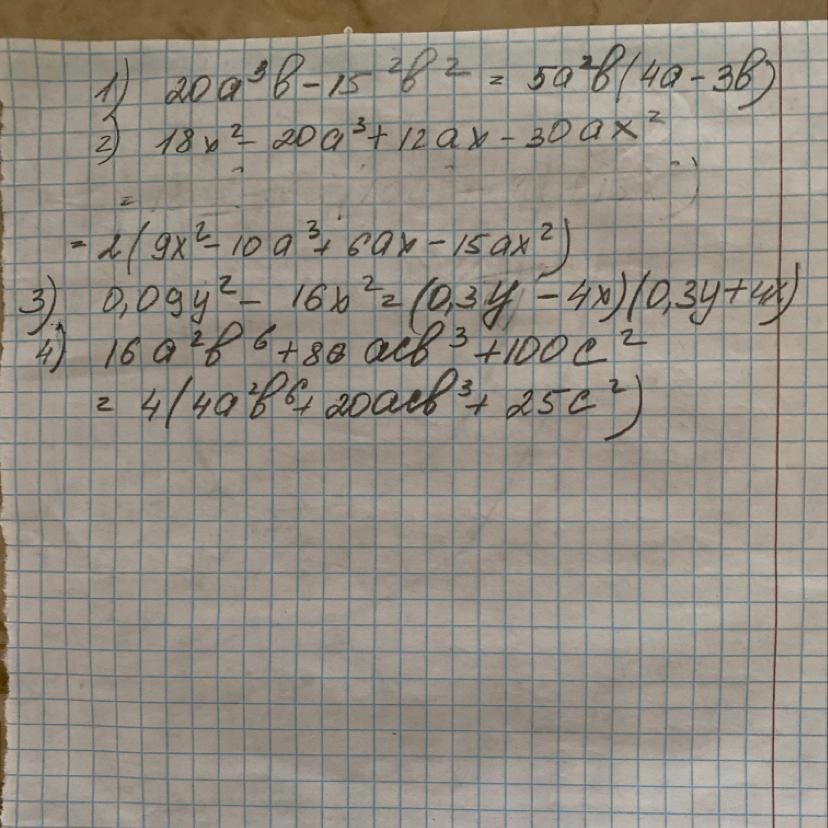 1) 20a³b - 15 ²b² = 5a²b(4a - 3b)
2) 18x² - 20a³ + 12ax - 30ax²
=
= 2(9x² - 10a³ + 6ax - 15ax²)
3) 0,09y² - 16x² = (0,3y - 4x)(0,3y + 4x)
4) 16a²b⁶ + 80acb³ + 100c²
= 4(4a²b⁶ + 20acb³ + 25c²)